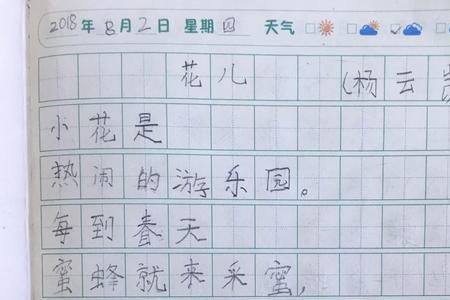 2018年8月2日 星期四 天气
花儿 (杨云
小花是
热闹的游乐园。
每到春天
蜜蜂就来采蜜,